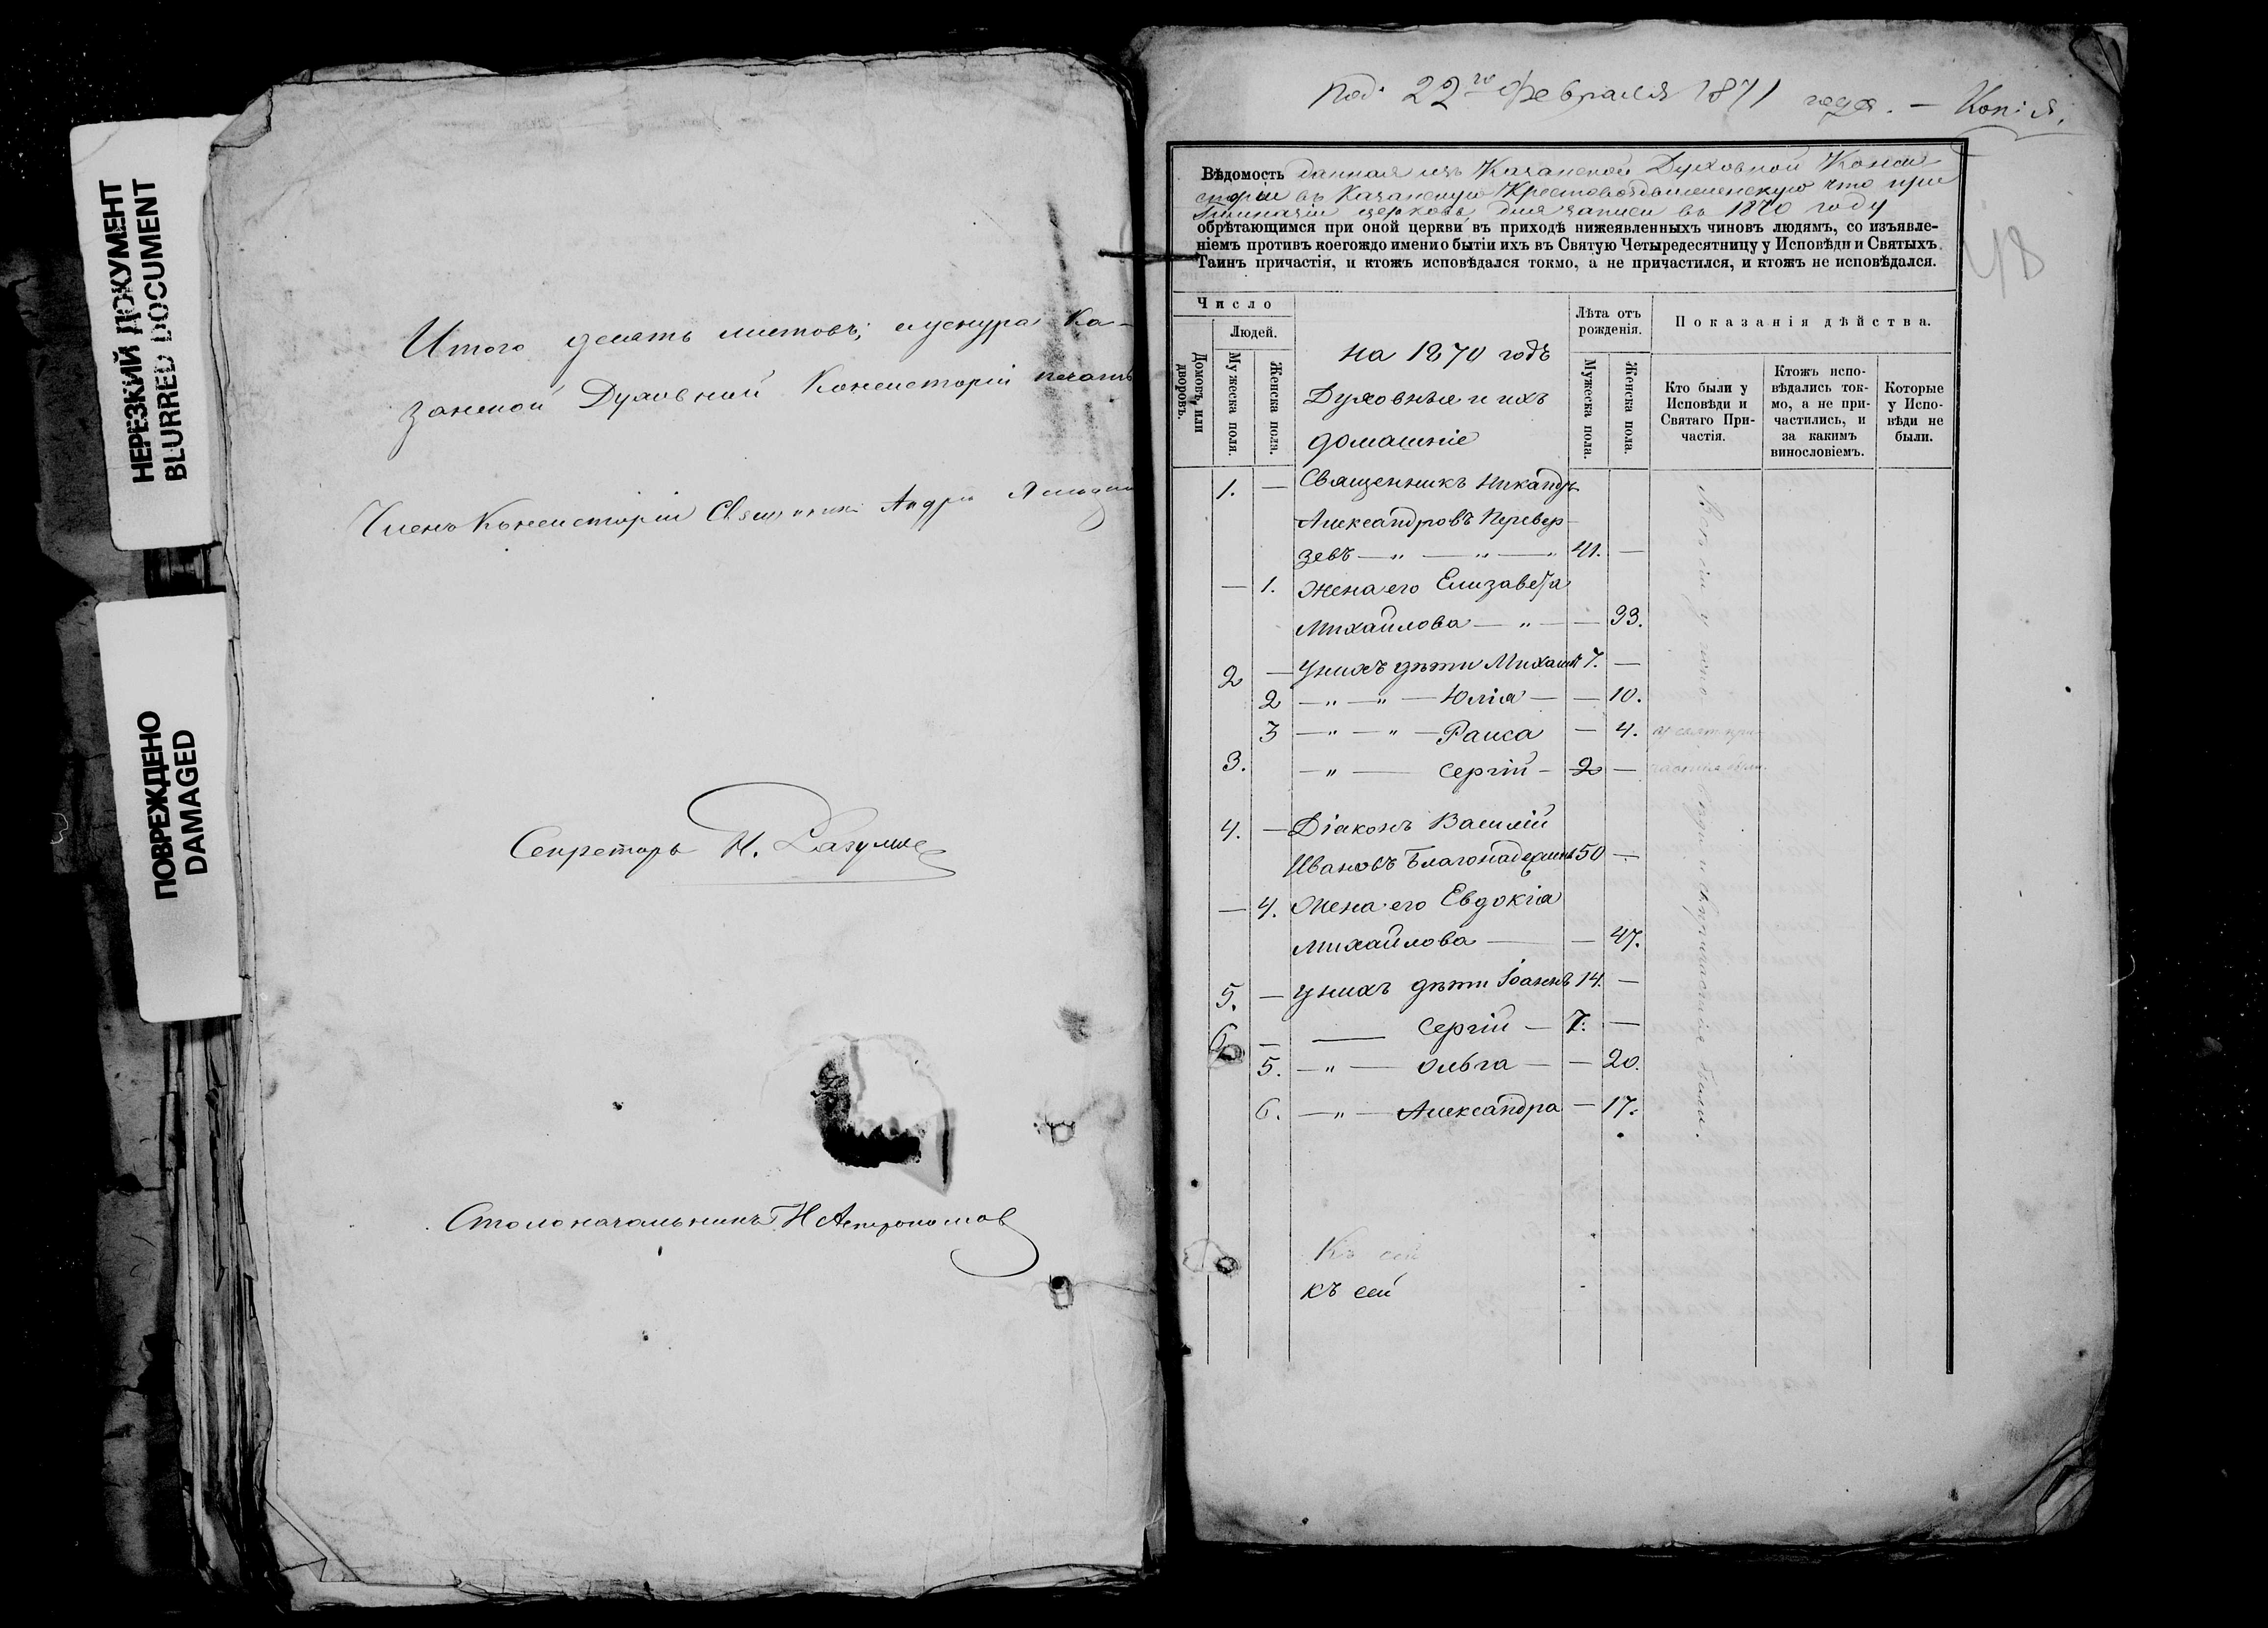 НЕРЕЗКИЙ ДОКУМЕНТ
BLURRED DOCUMENT
ПОВРЕЖДЕНО
DAMAGED
Итого десять листовъ; у шнура Ка-
занской Духовной Консисторіи печать
Членъ Консисторіи Священникъ Андрей
Секретарь Н.
Столоначальникъ Н Астрономов
Под. 22го Февраля 1871 года. — Копія.
48
Вѣдомость данная изъ Казанской Духовной Конси
сторіи въ Казанскую Крестовоздвиженскую что при
Гимназіи церковь, для записи въ 1870 году
обрѣтающимся при оной церкви въ приходѣ нижеявленныхъ чиновъ людямъ, со изъявле-
ніемъ противъ коегождо имени о бытіи ихъ въ Святую Четыредесятницу у Исповѣди и Святыхъ
Таинъ причастія, и ктожъ исповѣдался токмо, а не причастился, и ктожъ не исповѣдался.
Число
Домовъ или дворовъ.
Людей.
Мужеска пола.
Женска пола.
на 1870 годъ
Духовные и ихъ
домашніе
Лѣта отъ рожденія.
Мужеска пола.
Женска пола.
Показанія дѣйства.
Кто были у Исповѣди и Святаго Причастія.
Ктожъ исповѣдались токмо, а не причастились, и за какимъ винословіемъ.
Которые у Исповѣди не были.
1. — Священникъ Никандръ
Александровъ Перевер-
зевъ — „ — „ — „ 41. —
— 1. Жена его Елизавета
Михайлова — „ — — 33.
2 — У нихъ дѣти Михаилъ 7. —
2 — „ — „ — Юлія — — 10.
3 — „ — „ — Раиса — 4.
3. — „ — Сергій — 2 —
4. — Діаконъ Василій
Ивановъ Благонадеждинъ 50 —
— 4. Жена его Евдокія
Михайлова — — 47.
5. — У нихъ дѣти Іоаннъ 14. —
6 — — Сергій — 7. —
5. — „ — Ольга — — 20.
6. — „ — Александра — 17.
Всѣ сіи у
исповѣди и Св. причастія были.
Къ сей
къ сей